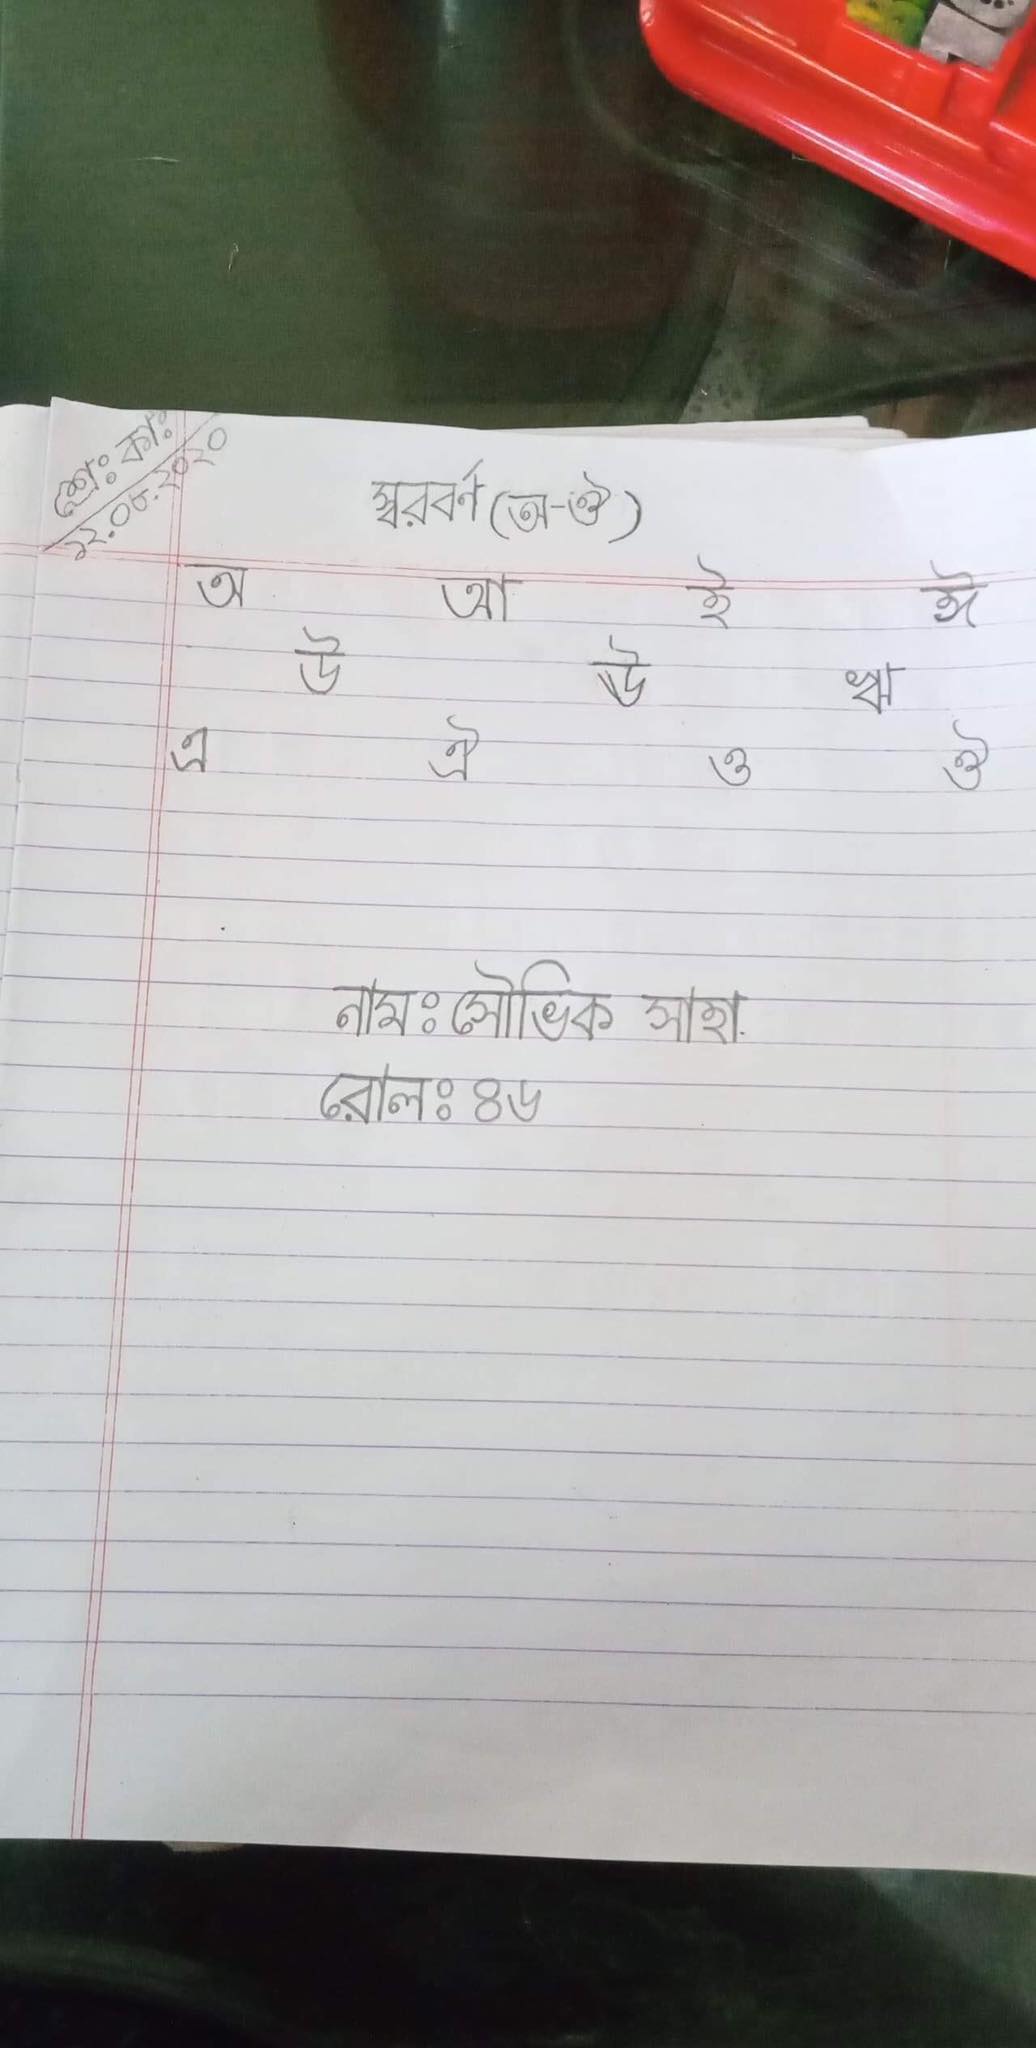 শ্রেঃ কাঃ
১২.০৮.২০২০
স্বরবর্ণ (অ-ঔ)
অ আ ই ঈ
উ ঊ ঋ
এ ঐ ও ঔ
নামঃ সৌভিক সাহা
রোলঃ ৪৬